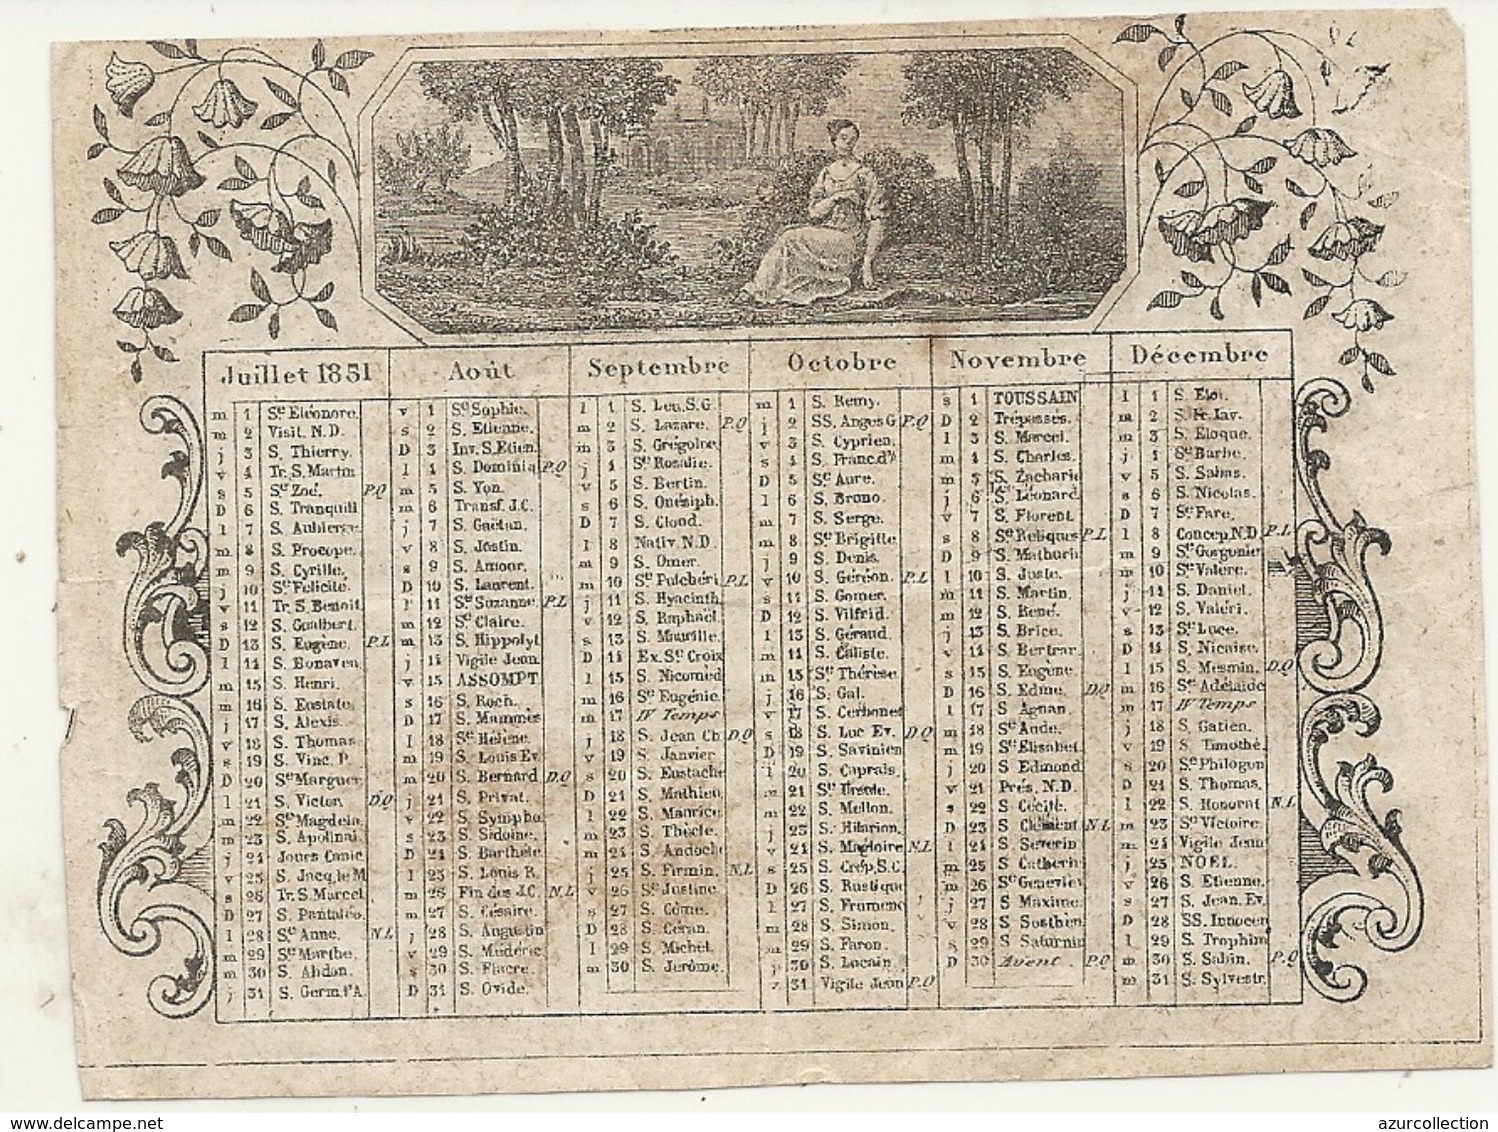 Juillet 1851
m 1 Ste Eléonore.
m 2 Visit. N.D.
j 3 S. Thierry.
v 4 Tr. S. Martin
s 5 Ste Zoé. P.Q
D 6 S. Tranquill
l 7 S. Aubierge.
m 8 S. Procope.
m 9 S. Cyrille.
j 10 Ste Félicité.
v 11 Tr. S. Benoit.
s 12 S. Gualbert.
D 13 S. Eugène. P.L
l 14 S. Bonaven.
m 15 S. Henri.
m 16 S. Eustate.
j 17 S. Alexis.
v 18 S. Thomas
s 19 S. Vinc. P.
D 20 Ste Marguer.
l 21 S. Victor. D.Q
m 22 Ste Magdeln.
m 23 S. Apolinai.
j 24 Jours Canic.
v 25 S. Jacq. le M
s 26 Tr. S. Marcel
D 27 S. Pantaléo.
l 28 Ste Anne. N.L
m 29 Ste Marthe.
m 30 S. Abdon.
j 31 S. Germ. l'A.
Août
v 1 Ste Sophie.
s 2 S. Etienne.
D 3 Inv. S. Etien.
l 4 S. Dominiq P.Q
m 5 S. Yon.
m 6 Transf. J.C.
j 7 S. Gaëtan.
v 8 S. Justin.
s 9 S. Amour.
D 10 S. Laurent.
l 11 Ste Suzanne. P.L
m 12 Ste Claire.
m 13 S. Hippolyt
j 14 Vigile Jeun.
v 15 ASSOMPT.
s 16 S. Roch.
D 17 S. Mammès
l 18 Ste Hélène.
m 19 S. Louis Ev.
m 20 S. Bernard D.Q
j 21 S. Privat.
v 22 S. Sympho.
s 23 S. Sidoine.
D 24 S. Barthéle.
l 25 S. Louis R.
m 26 Fin des J.C. N.L
m 27 S. Césaire.
j 28 S. Augustin
v 29 S. Médéric.
s 30 S. Fiacre.
D 31 S. Ovide.
Septembre
l 1 S. Leu. S.G
m 2 S. Lazare. P.Q
m 3 S. Grégoire.
j 4 Ste Rosalie.
v 5 S. Bertin.
s 6 S. Onésiph.
D 7 S. Cloud.
l 8 Nativ. N.D.
m 9 S. Omer.
m 10 Ste Pulchéri P.L
j 11 S. Hyacinth.
v 12 S. Raphaël.
s 13 S. Maurille.
D 14 Ex. Ste Croix
l 15 S. Nicomèd
m 16 Ste Eugénie.
m 17 IV Temps
j 18 S. Jean Ch. D.Q
v 19 S. Janvier.
s 20 S. Eustache
D 21 S. Mathieu.
l 22 S. Maurice.
m 23 S. Thècle.
m 24 S. Andoche
j 25 S. Firmin. N.L
v 26 Ste Justine.
s 27 S. Côme.
D 28 S. Céran.
l 29 S. Michel.
m 30 S. Jérôme.
Octobre
m 1 S. Remy.
j 2 SS. Anges G P.Q
v 3 S. Cyprien.
s 4 S. Franc. d'A
D 5 Ste Aure.
l 6 S. Bruno.
m 7 S. Serge.
m 8 Ste Brigitte
j 9 S. Denis.
v 10 S. Géréon. P.L
s 11 S. Gomer.
D 12 S. Vilfrid.
l 13 S. Géraud.
m 14 S. Caliste.
m 15 Ste Thérèse.
j 16 S. Gal.
v 17 S. Cerbonet
s 18 S. Luc Ev. D.Q
D 19 S. Savinien
l 20 S. Caprais.
m 21 Ste Ursule.
m 22 S. Mellon.
j 23 S. Hilarion.
v 24 S. Magloire N.L
s 25 S. Crép. S.C.
D 26 S. Rustique
l 27 S. Frumenc
m 28 S. Simon.
m 29 S. Faron.
j 30 S. Lucain.
v 31 Vigile Jeun P.Q
Novembre
s 1 TOUSSAIN
D 2 Trépassés.
l 3 S. Marcel.
m 4 S. Charles.
m 5 S. Zacharie
j 6 S. Léonard
v 7 S. Florent
s 8 Stes Reliques P.L
D 9 S. Mathurin
l 10 S. Juste.
m 11 S. Martin.
m 12 S. René.
j 13 S. Brice.
v 14 S. Bertrar.
s 15 S. Eugène.
D 16 S. Edme. D.Q
l 17 S. Agnan.
m 18 Ste Aude.
m 19 Ste Elisabet.
j 20 S. Edmond
v 21 Prés. N.D.
s 22 S Cécile.
D 23 S. Clément N.L
l 24 S. Séverin
m 25 S Catherin
m 26 Ste Genevièv
j 27 S Maxime.
v 28 S Sosthèn
s 29 S Saturnin
D 30 Avent. P.Q
Décembre
l 1 S. Eloi.
m 2 S. Fr. Xav.
m 3 S. Eloque.
j 4 Ste Barbe.
v 5 S. Sabas.
s 6 S. Nicolas.
D 7 Ste Fare.
l 8 Concep. N.D. P.L
m 9 Ste Gorgonie
m 10 Ste Valère.
j 11 S. Daniel.
v 12 S. Valéri.
s 13 Ste Luce.
D 14 S. Nicaise.
l 15 S. Mesmin. D.Q
m 16 Ste Adélaïde
m 17 IV Temps
j 18 S. Gatien.
v 19 S. Timothé.
s 20 Ste Philogon
D 21 S. Thomas.
l 22 S. Honorat N.L
m 23 Ste Victoire.
m 24 Vigile Jeun
j 25 NOEL.
v 26 S. Etienne.
s 27 S. Jean. Ev.
D 28 SS. Innocen
l 29 S. Trophim
m 30 S. Sabin. P.Q
m 31 S. Sylvestr.
www.delcampe.net
azurcollection